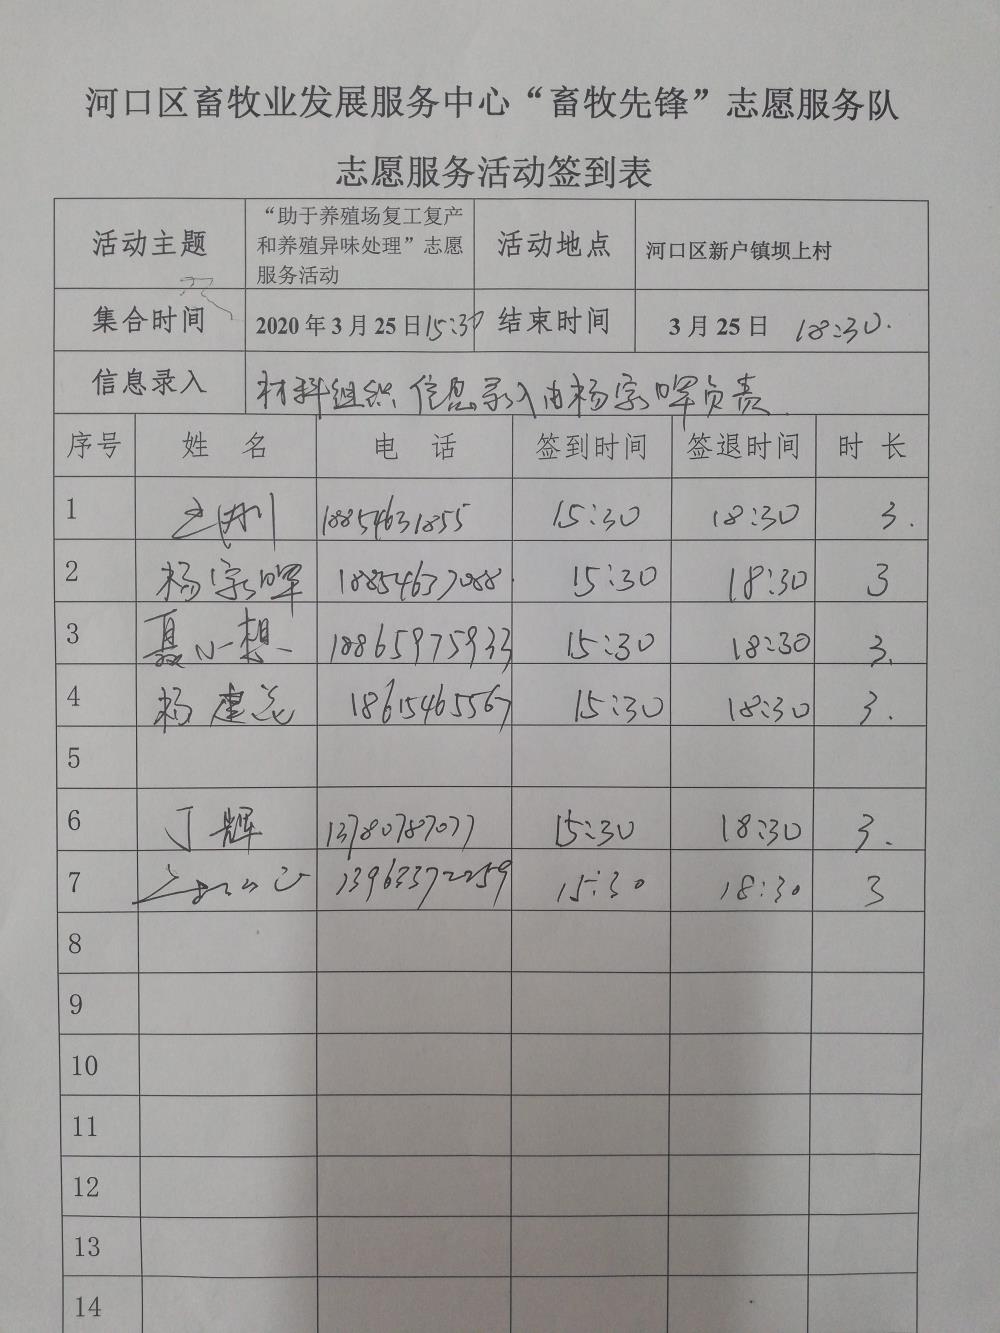 河口区畜牧业发展服务中心“畜牧先锋”志愿服务队
志愿服务活动签到表
活动主题 “助于养殖场复工复产和养殖异味处理”志愿服务活动 活动地点 河口区新户镇坝上村
集合时间 2020年3月25日15:30 结束时间 3月25日 18:30.
信息录入 材料组织 信息录入由杨宗晖负责.
序号 姓 名 电 话 签到时间 签退时间 时 长
1 18854631855 15:30 18:30 3.
2 杨宗晖 18854637088. 15:30 18:30 3
3 聂小想 18865975933 15:30 18:30 3.
4 杨建 18615465567 15:30 18:30 3.
5
6 丁辉 13780787077 15:30 18:30 3.
7 13963372259 15:30 18:30 3
8
9
10
11
12
13
14